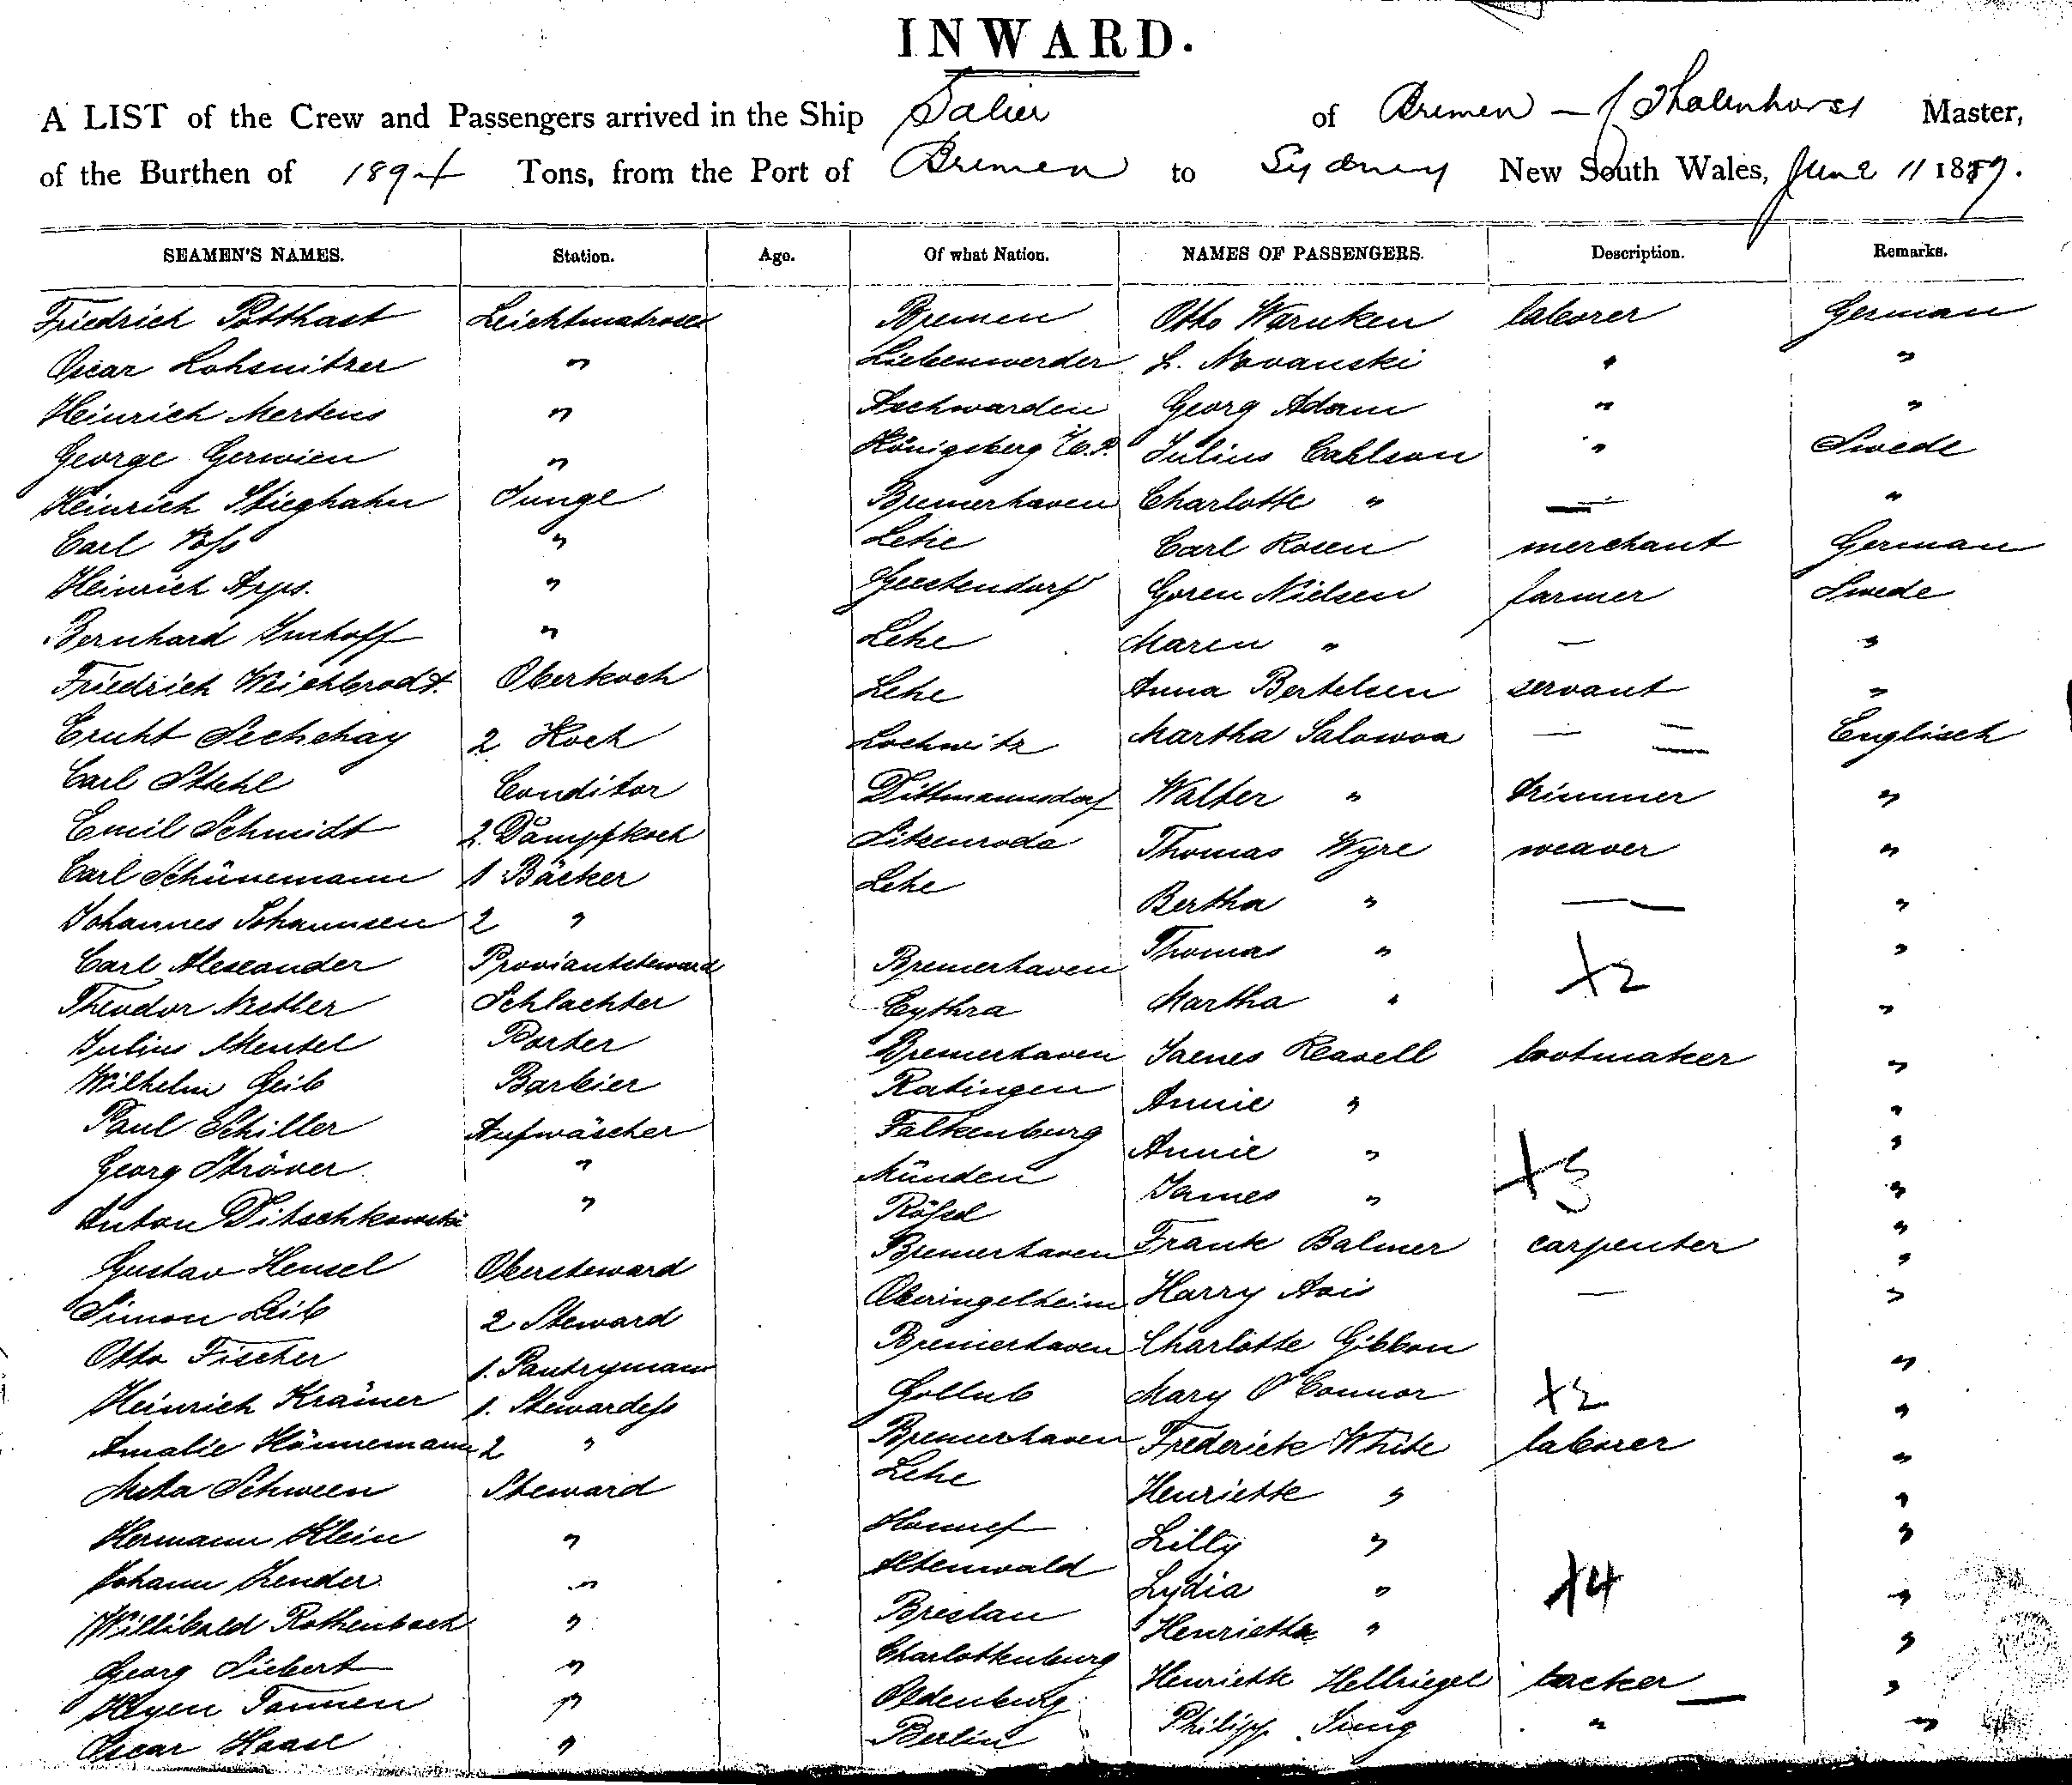 INWARD.
A LIST of the Crew and Passengers arrived in the Ship Salier of Bremen — Thalenhorst Master,
of the Burthen of 1894 Tons, from the Port of Bremen to Sydney New South Wales, June 11 1889.
SEAMEN'S NAMES. Station. Age. Of what Nation. NAMES OF PASSENGERS. Description. Remarks.
Friedrich Potthast Leichtmatrosen Bremen Otto Warnken laborer German
Oscar Lohsnitzer " Liebenwerder L. Novanski " "
Heinrich Mertens " Aschwarden Georg Adam " "
George Gerwien " Königsberg Julius Cahlson " Swede
Heinrich Stieghahn Junge Bremerhaven Charlotte " — "
Carl Voss " Lehe Carl Rosen merchant German
Heinrich Arps. " Geestendorf Goren Nielsen farmer Swede
Bernhard Imhoff " Lehe Maren " — "
Friedrich Weichbrodt. Oberkoch Lehe Anna Bertelsen servant "
Sechehay 2 Koch Lochwitz Martha Salowoa — Englisch
Carl Stehl Conditor Dittmannsdorf Walter " trimmer "
Emil Schmidt 2. Dampfkoch Sitzenroda Thomas Wyre weaver "
Carl Schünemann 1 Bäcker Lehe Bertha " — "
Johannes Johannsen 2 " Thomas " "
Carl Alexander Proviantsteward Bremerhaven Martha " +2 "
Theodor Nestler Schlachter Cythra
Julius Mentel Porter Bremerhaven James Reavell bootmaker "
Wilhelm Geib Barbier Ratingen Annie " "
Paul Schiller Aufwäscher Falkenburg Annie " +3 "
Georg Ströver " Münden James " "
Anton Ditschkowski " Rößel
Gustav Hensel Obersteward Bremerhaven Frank Balmer carpenter "
Simon Leib 2 Steward Oberingelheim Harry Avis — "
Otto Fischer 1. Pantrymann Bremerhaven Charlotte Gibbon "
Heinrich Krämer 1. Stewardess Gollub Mary O'Connor +2 "
Amalie Hännemann 2 " Bremerhaven Frederick White laborer "
Meta Schween Steward Lehe Henriette " "
Hermann Klein " Honnef Lilly " "
Johann Zender " Altenwald Lydia " +4 "
Willibald Rothenbach " Breslau Henrietta " "
Georg Siebert " Charlottenburg Henriette Hellriegel backer "
Heyen Tannen " Oldenburg Philipp Jung " "
Oscar Haase " Berlin